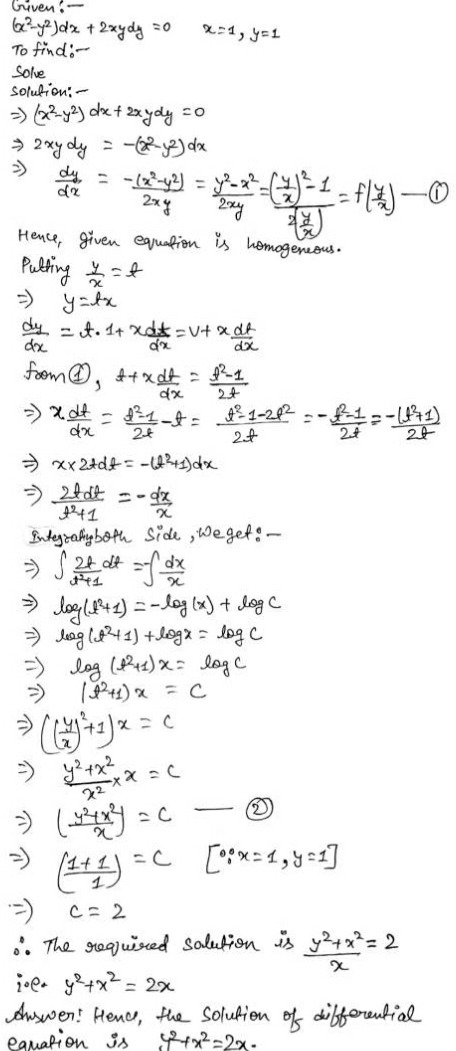 Given :-
(x²-y²)dx + 2xydy = 0   x=1, y=1
To find :-
Solve
Solution :-
⇒ (x²-y²) dx + 2xydy = 0
⇒ 2xydy = -(x²-y²)dx
⇒ dy/dx = -(x²-y²)/2xy = (y²-x²)/2xy = ((y/x)²-1)/2(y/x) = f(y/x) —①
Hence, given equation is homogeneous.
Putting y/x = t
⇒ y = tx
dy/dx = t·1 + x dt/dx = v + x dt/dx
from ①, t + x dt/dx = (t²-1)/2t
⇒ x dt/dx = (t²-1)/2t - t = (t²-1-2t²)/2t = (-t²-1)/2t = -(t²+1)/2t
⇒ x×2tdt = -(t²+1)dx
⇒ 2tdt/(t²+1) = -dx/x
Integratig both side, we get :-
⇒ ∫ 2t/(t²+1) dt = -∫ dx/x
⇒ log(t²+1) = -log(x) + log C
⇒ log(t²+1) + logx = log C
⇒ log (t²+1)x = log C
⇒ (t²+1)x = C
⇒ ((y/x)²+1)x = C
⇒ (y²+x²)/x² × x = C
⇒ ((y²+x²)/x) = C —②
⇒ ((1+1)/1) = C   [∵ x=1, y=1]
⇒ C = 2
∴ The required solution is (y²+x²)/x = 2
i.e. y²+x² = 2x
Answer: Hence, the solution of differential
equation is y²+x²=2x.